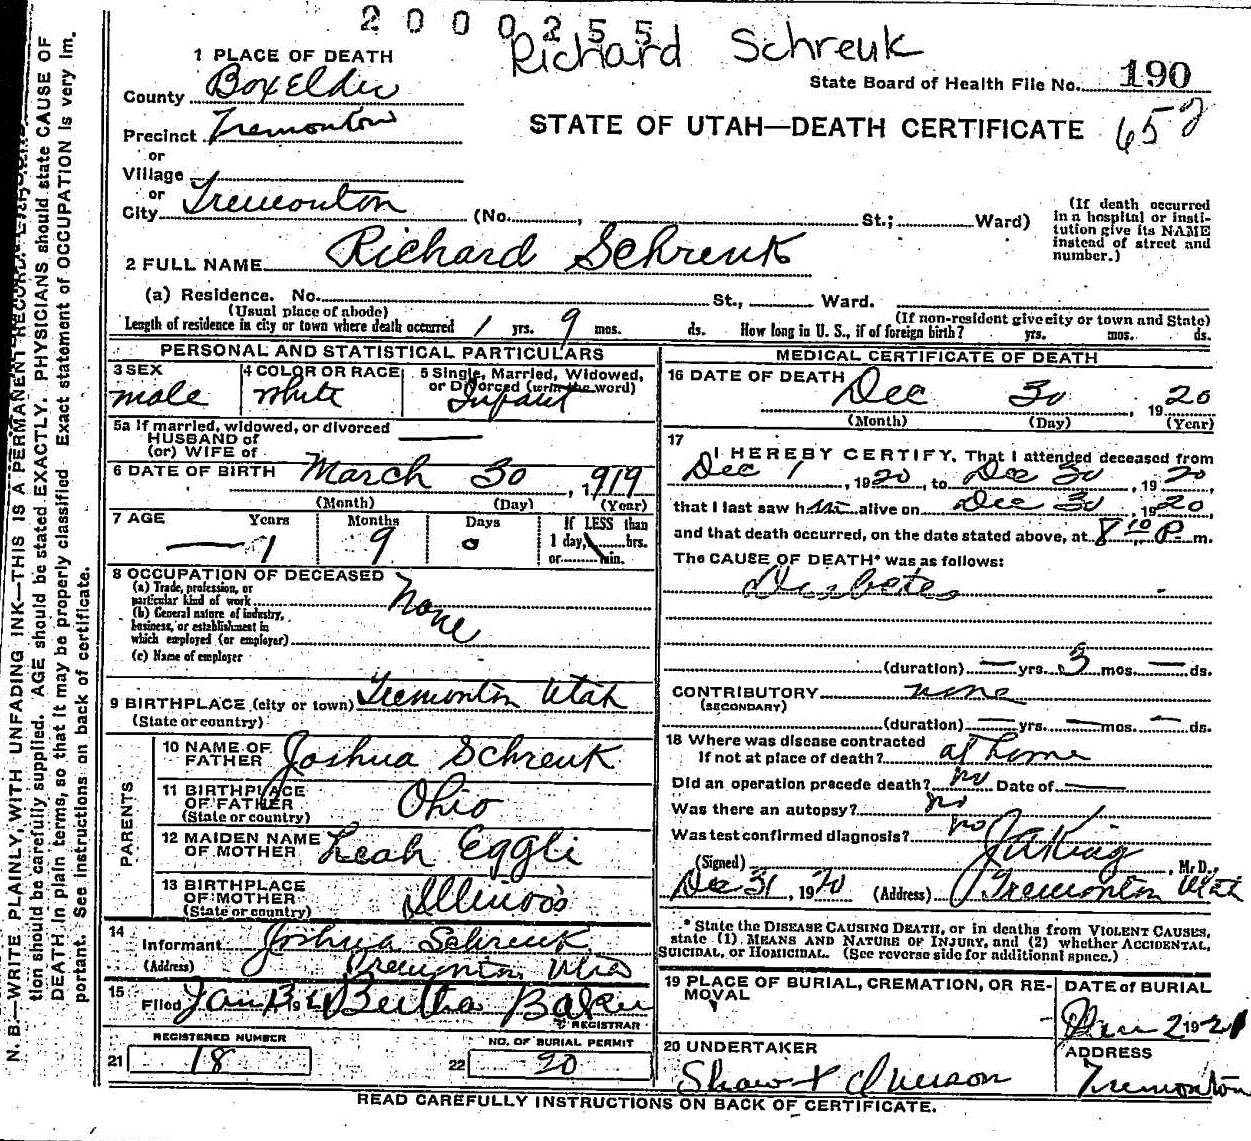 2000255
Richard Schreuk
1 PLACE OF DEATH
State Board of Health File No. 190
County Box Elder
STATE OF UTAH—DEATH CERTIFICATE
Precinct Tremonton
or
Village
or
City Tremonton (No. , St.; Ward)
(If death occurred
in a hospital or insti-
tution give its NAME
instead of street and
number.)
2 FULL NAME Richard Schreuk
(a) Residence. No. St., Ward.
(Usual place of abode) (If non-resident give city or town and State)
Length of residence in city or town where death occurred 1 yrs. 9 mos. ds. How long in U. S., if of foreign birth? yrs. mos. ds.
PERSONAL AND STATISTICAL PARTICULARS
3 SEX 4 COLOR OR RACE 5 Single, Married, Widowed,
or Divorced (write the word)
male white Infant
5a If married, widowed, or divorced
HUSBAND of
(or) WIFE of
6 DATE OF BIRTH March 30, 1919
(Month) (Day) (Year)
7 AGE Years Months Days If LESS than
1 day, hrs.
or min.
1 9 0
8 OCCUPATION OF DECEASED
(a) Trade, profession, or
particular kind of work None
(b) General nature of industry,
business, or establishment in
which employed (or employer)
(c) Name of employer
9 BIRTHPLACE (city or town) Tremonton Utah
(State or country)
PARENTS
10 NAME OF
FATHER Joshua Schreuk
11 BIRTHPLACE
OF FATHER Ohio
(State or country)
12 MAIDEN NAME
OF MOTHER Leah Eggli
13 BIRTHPLACE
OF MOTHER Illinois
(State or country)
14
Informant Joshua Schreuk
(Address) Tremonton Utah
15 Filed Jan Bertha Baker
REGISTRAR
REGISTERED NUMBER NO. OF BURIAL PERMIT
21 18 22 20
MEDICAL CERTIFICATE OF DEATH
16 DATE OF DEATH Dec 30, 1920
(Month) (Day) (Year)
17
I HEREBY CERTIFY, That I attended deceased from
Dec 1, 1920, to Dec 30, 1920,
that I last saw him alive on Dec 30, 1920,
and that death occurred, on the date stated above, at 8 10 P. m.
The CAUSE OF DEATH* was as follows:
Diabetes
(duration) — yrs. 3 mos. — ds.
CONTRIBUTORY none
(SECONDARY)
(duration) — yrs. — mos. — ds.
18 Where was disease contracted
If not at place of death? at home
Did an operation precede death? no Date of —
Was there an autopsy? no
Was test confirmed diagnosis? no
(Signed) King, M. D.
Dec 31, 1920 (Address) Tremonton Utah
* State the DISEASE CAUSING DEATH, or in deaths from VIOLENT CAUSES,
state (1) MEANS AND NATURE OF INJURY, and (2) whether ACCIDENTAL,
SUICIDAL, or HOMICIDAL. (See reverse side for additional space.)
19 PLACE OF BURIAL, CREMATION, OR RE-
MOVAL
DATE of BURIAL
Jan 2 1921
20 UNDERTAKER
Shaw & Iverson
ADDRESS
Tremonton
READ CAREFULLY INSTRUCTIONS ON BACK OF CERTIFICATE.
N. B.—WRITE PLAINLY, WITH UNFADING INK—THIS IS A PERMANENT RECORD.
tion should be carefully supplied. AGE should be stated EXACTLY. PHYSICIANS should state CAUSE OF
DEATH in plain terms, so that it may be properly classified. Exact statement of OCCUPATION is very im.
portant. See instructions on back of certificate.